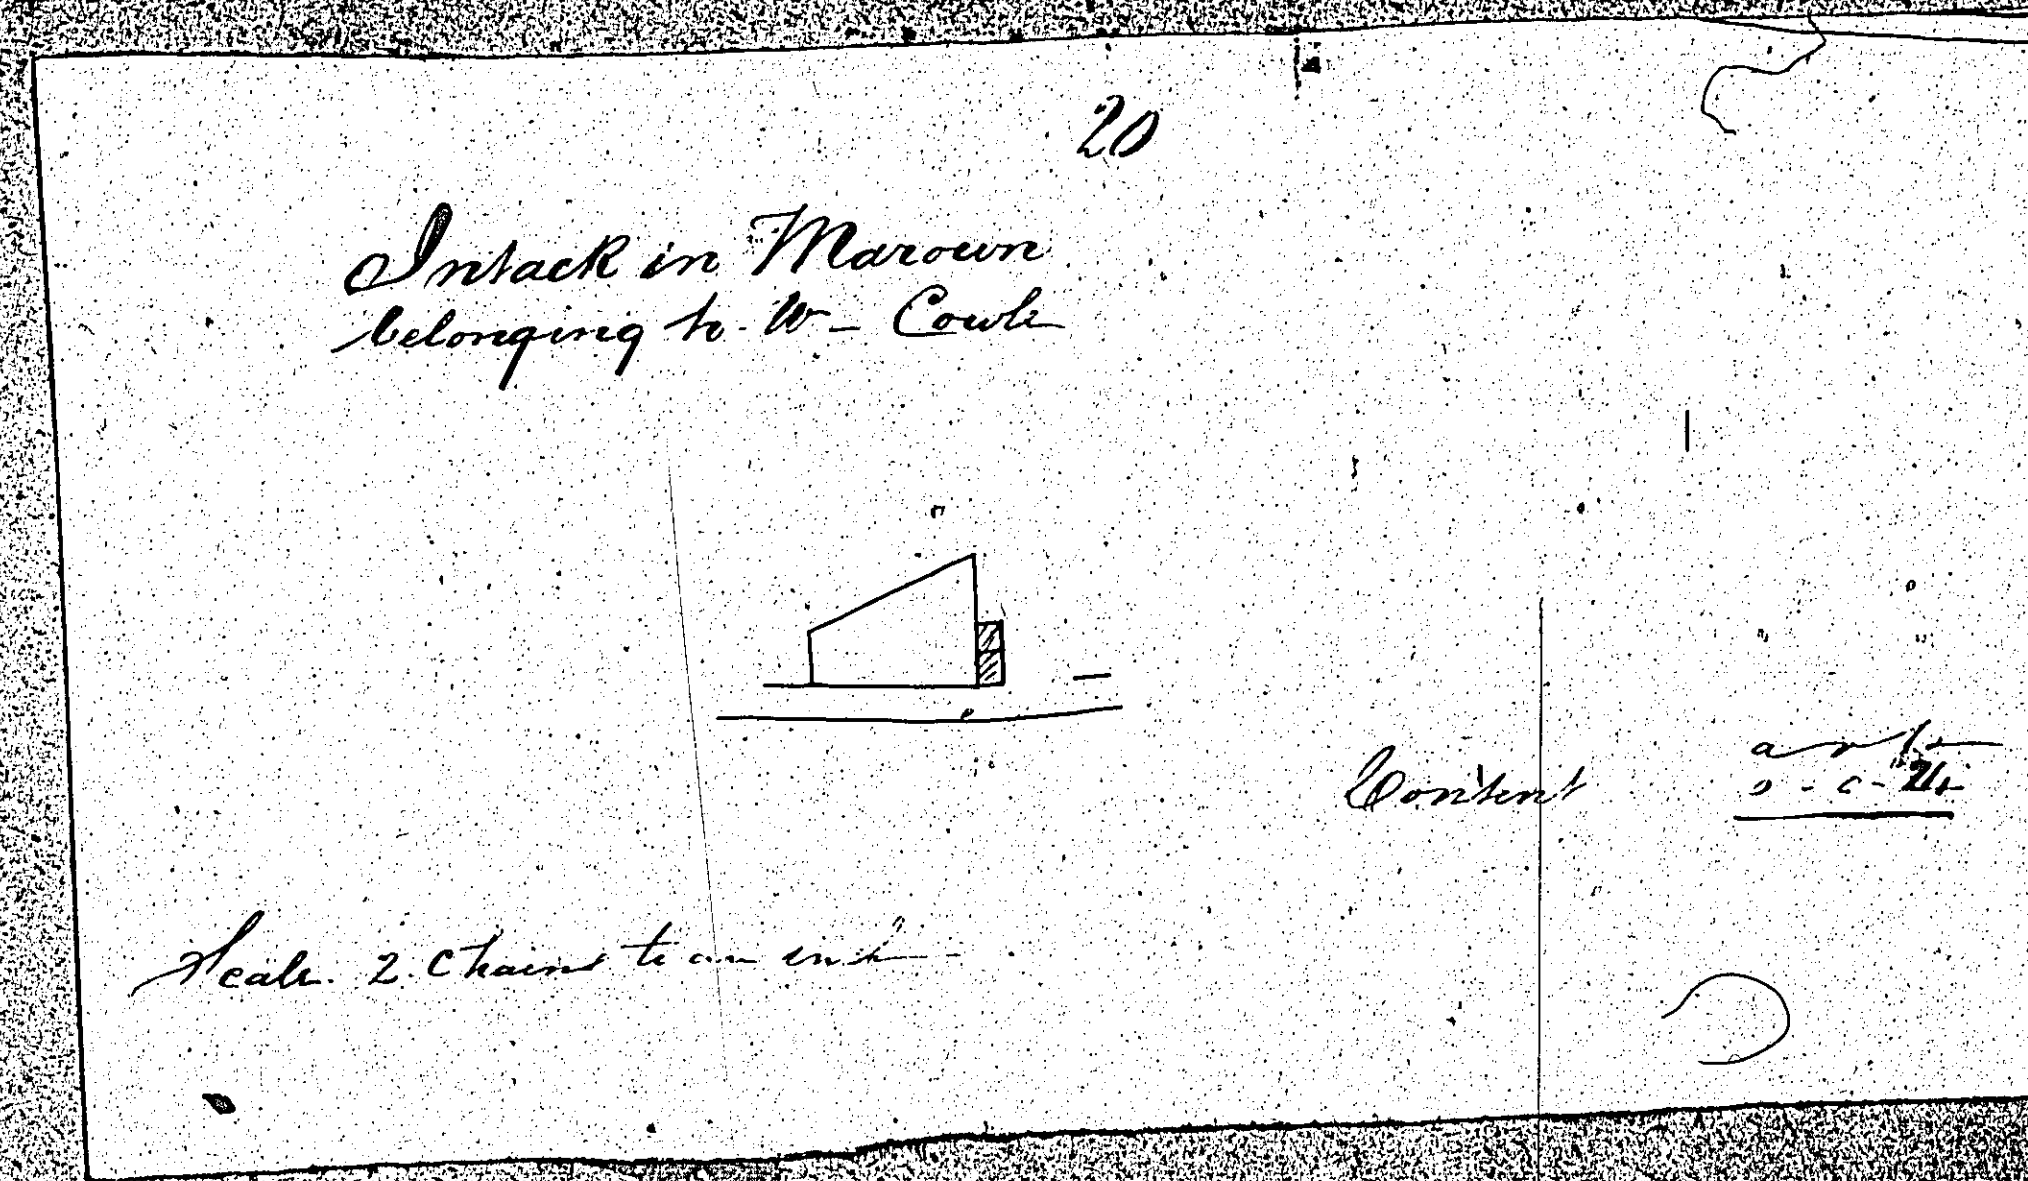 20
Intack in Marown
belonging to W- Cowle
a r p
Content 0 - 0 -
Scale 2 Chains to an inch